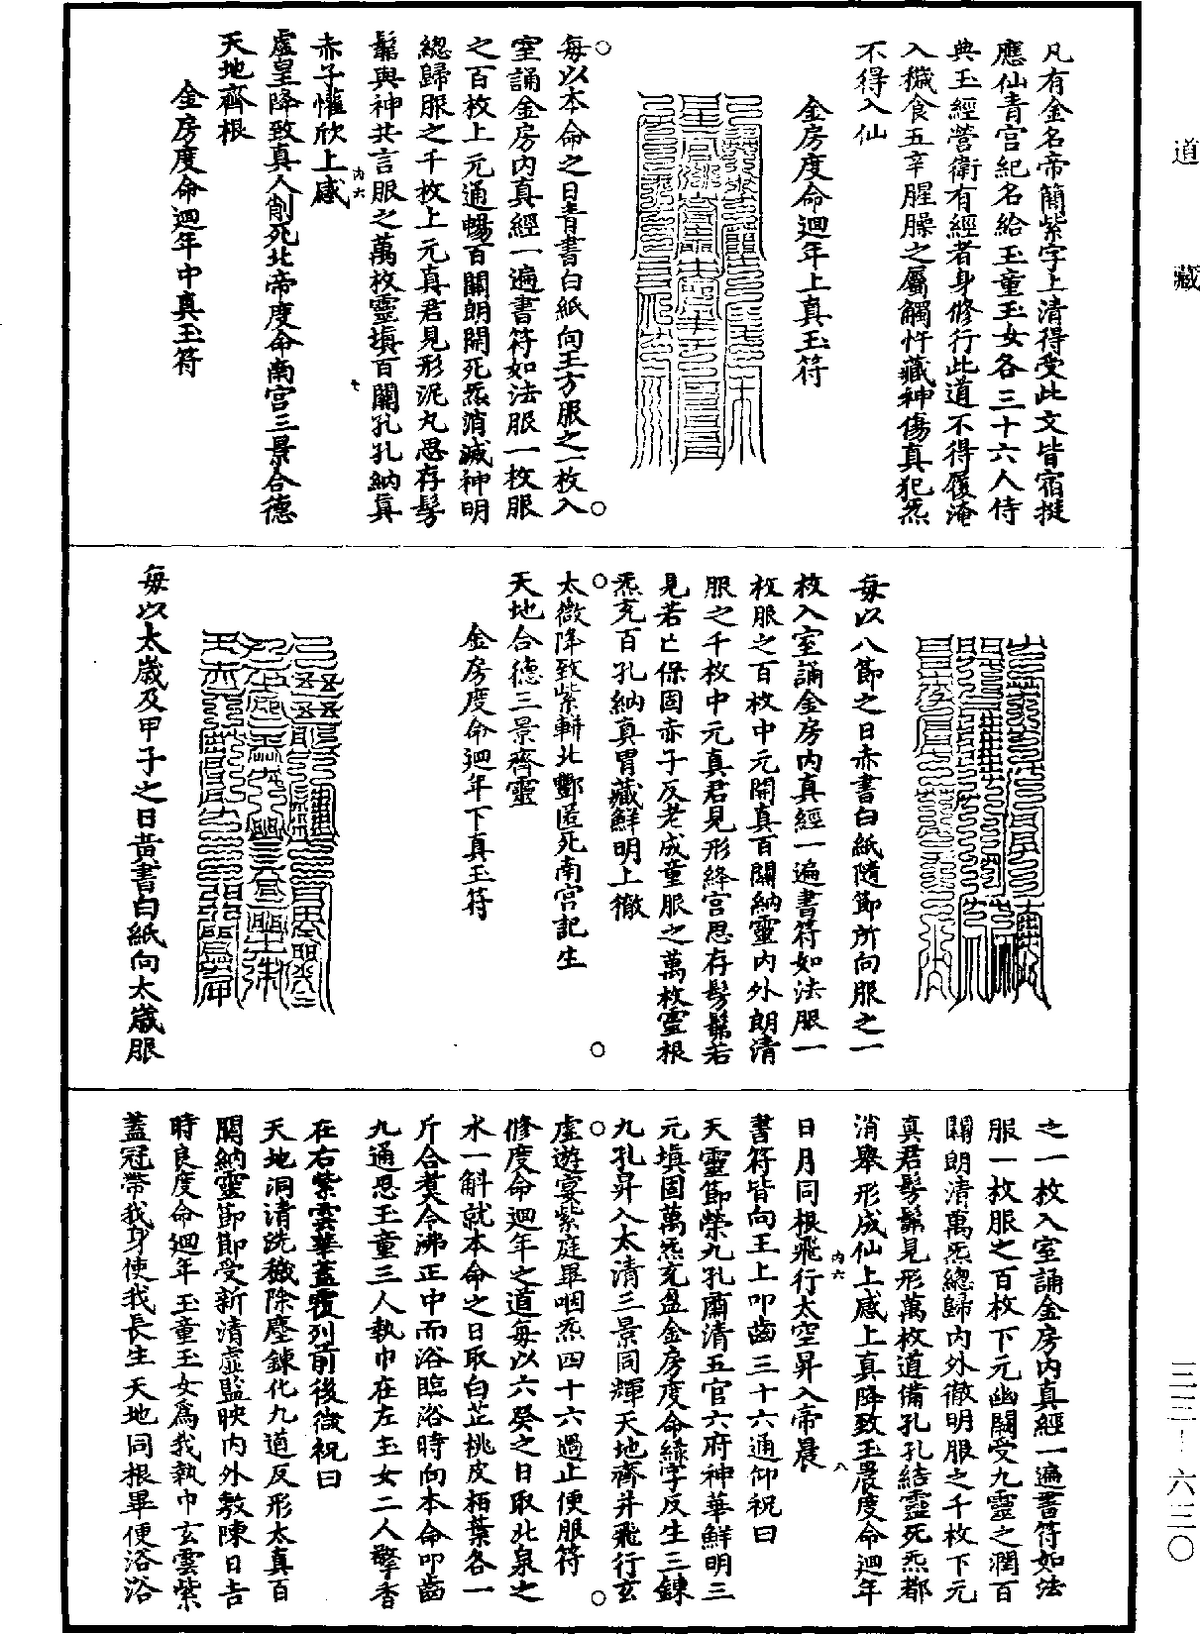 道藏
凡有金名帝簡紫字上清得受此文皆宿挺
應仙青宮紀名給玉童玉女各三十六人侍
典玉經營衛有經者身修行此道不得履淹
入穢食五辛腥臊之屬觸忤藏神傷真犯炁
不得入仙
金房度命迴年上真玉符
每以本命之日青書白紙向王方服之一枚入
室誦金房內真經一遍書符如法服一枚服
之百枚上元通暢百關朗開死炁消滅神明
總歸服之千枚上元真君見形泥丸思存髣
髴與神共言服之萬枚靈填百關孔孔納真
赤子懽欣上感
內六
七
虛皇降致真人削死北帝度命南宮三景合德
天地齊根
金房度命迴年中真玉符
每以八節之日赤書白紙隨節所向服之一
枚入室誦金房內真經一遍書符如法服一
枚服之百枚中元開真百關納靈內外朗清
服之千枚中元真君見形絳宮思存髣髴若
見若亡保固赤子反老成童服之萬枚靈根
炁充百孔納真胃藏鮮明上徹
太微降致紫軿北酆匿死南宮記生
天地合德三景齊靈
金房度命迴年下真玉符
每以太歲及甲子之日黃書白紙向太歲服
之一枚入室誦金房內真經一遍書符如法
服一枚服之百枚下元幽關受九靈之潤百
關朗清萬炁總歸內外徹明服之千枚下元
真君髣髴見形萬枚道備孔孔結靈死炁都
消舉形成仙上感上真降致玉晨度命迴年
內六
八
日月同根飛行太空昇入帝晨
書符皆向王上叩齒三十六通仰祝曰
天靈節榮九孔肅清五官六府神華鮮明三
元填固萬炁充盈金房度命緣字反生三鍊
九孔昇入太清三景同輝天地齊并飛行玄
虛遊宴紫庭畢咽炁四十六過止便服符
修度命迴年之道每以六癸之日取北泉之
水一斛就本命之日取白芷桃皮栢葉各一
斤合煑令沸正中而浴臨浴時向本命叩齒
九通思玉童三人執巾在左玉女二人擎香
在右紫雲華蓋覆列前後微祝曰
天地洞清洗穢除塵鍊化九道反形太真百
關納靈節節受新清虛監映內外敷陳日吉
時良度命迴年玉童玉女為我執巾玄雲紫
蓋冠帶我身使我長生天地同根畢便浴浴
三三－六三〇